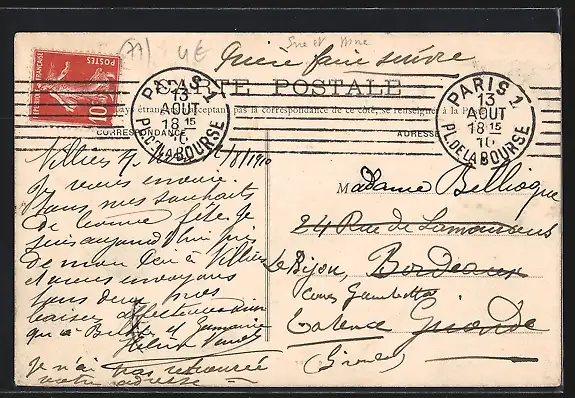 (77)
Prière faire suivre
Seine et Marne
POSTES
10
CARTE POSTALE
pas la correspondance de ce côté, se renseigner à la
CORRESPONDANCE
ADRESSE
PARIS 1
13
AOUT
18 15
10
PL. DE LA BOURSE
PARIS 1
13
AOUT
18 15
10
PL. DE LA BOURSE
Villiers /8/1910
Je vous envoie
tous mes souhaits
de bonne fête. Je
suis aujourd'hui près
de mon à Villiers
et vous envoyons
tous deux nos
baisers affectueux ainsi
qu'à et Germaine
Je n'ai pas retrouvé
votre adresse
Madame Bellioque
24 Rue de Lamourous
Le Bijou, Bordeaux
Cours Gambetta
Talence Gironde
(Gironde)